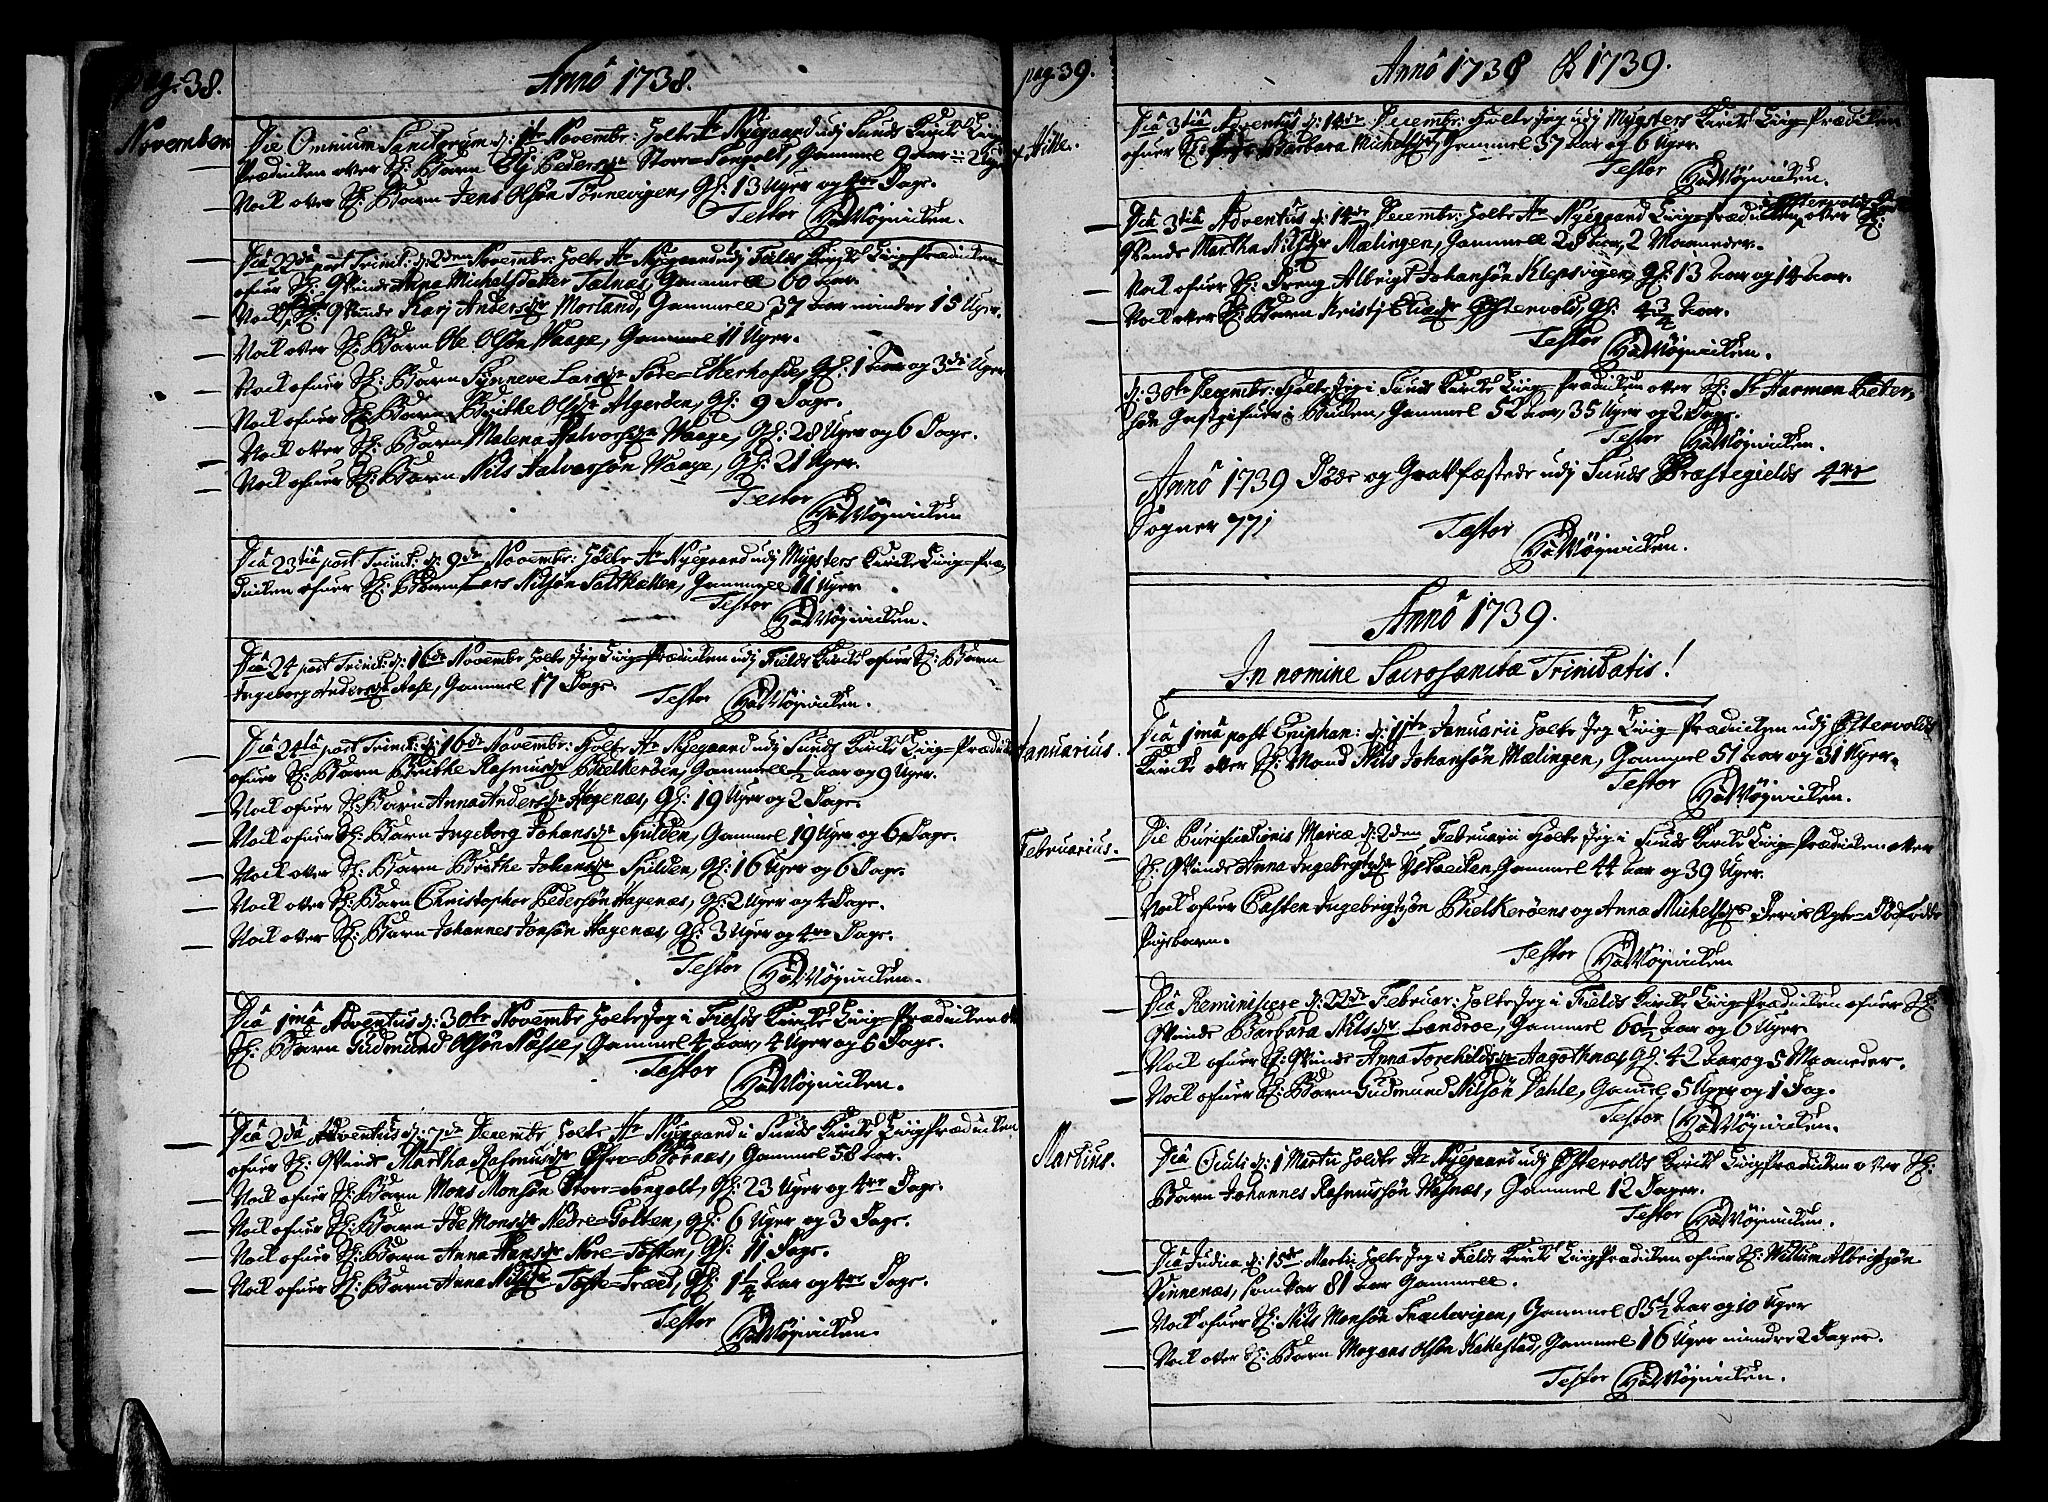 pag. 38.
Annô 1738.
November
Die Omnium Sanctorum d: 1ste Novembr: holte Hr Nyegaard udj Sunds Kircke Liig-
Prædicken over Sl: Barn Elj Pedersdr Store-Songolt, Gammel 9 Aar 2 Uger
Nock over Sl: Barn Jens Olsøn Tønnevigen, Gl: 13 Uger og 4re Dage.
Testor HaMøjnicken.
Dca 22da post Trinit: d: 2den Novembr: holte Hr Nyegaard udj Fields Kircke Liig-Prædicken
ofver Sl: Qvinde Anna Michelsdatter Tælnæs, Gammell 60 Aar.
Nock ofver Sl: Qvinde Karj Andersdr Morland, Gammell 37 Aar mindre 15 Uger.
Nock over Sl: Barn Ole Olsøn Waage, Gammel 11 Uger.
Nock ofver Sl: Barn Synneve Larsdr Søre-Ekerhofde, Gl: 1 Aar og 3de Uger
Nock ofver Sl: Barn Brithe Olsdr Algerøen, Gl: 9 Dage.
Nock over Sl: Barn Malena Halvorsdr Waage, Gl: 28 Uger og 6 Dage.
Nock ofver Sl: Barn Nils Halvorsøn Waage, Gl: 21 Uger.
Testor
HaMøjnicken
Dca 23tia post Trinit: d: 9de Novembr: holte Hr Nyegaard udj Mygsters Kircke Liig-Præ-
dicken ofver Sl: Barn Lars Nilsøn Salthætten, Gammell 11 Uger.
Testor
HaMøjnicken.
Dca 24 post Trinit: d: 16de Novembr holte Jeg Liig-Prædicken udj Fields Kircke ofver Sl: Barn
Ingeborg Andersdr Aase, Gammel 17 Dage.
Testor HaMøjnicken.
Dca 24ta post Trinit: d: 16de Novembr: holte Hr Nyegaard udj Sunds Kircke Liig-Prædicken
ofver Sl: Barn Brithe Rasmusdr Bielkerøen, Gammell 1/2 Aar og 9 Uger.
Nock ofver Sl: Barn Anna Andersdr Hagenæs, Gl: 19 Uger og 2 Dage.
Nock ofver Sl: Barn Ingeborg Johansdr Spilden, Gammel 19 Uger og 6 Dage.
Nock over Sl: Barn Brithe Johansdr Spilden, Gl: 16 Uger og 6 Dage.
Nock over Sl: Barn Christopher Pedersøn Hagenæs, Gl: 2 Uger og 4 Dage.
Nock over Sl: Barn Johannes Jonsøn Hagenæs, Gl: 3 Uger og 4re Dage.
Testor HaMøjnicken.
Dca 1ma Adventus d: 30te Novembr holte Jeg i Fields Kircke Liig-Prædicken over
Sl: Barn Gudmund Olsøn Næsse, Gammel 4 Aar, 4 Uger og 6 Dage.
Testor
HaMøjnicken.
Dca 2da Adventus d: 7de Decembr holte Hr Nyegaard i Sunds Kircke Liig-Prædicken
ofver Sl: Qvinde Martha Rasmusdr Øfre-Børnæs, Gammel 58 Aar.
Nock ofver Sl: Barn Mons Monsøn Store-Songolt, Gl: 23 Uger og 4re Dage.
Nock ofver Sl: Barn Ide Monsdr Nedre-Golten, Gl: 6 Uger og 3 Dage.
Nock ofver Sl: Barn Anna Hansdr Nore-Toften, Gl: 11 Dage.
Nock ofver Sl: Barn Anna Nilsdr Tofte-Træet, Gl: 1 1/4 Aar og 4re Dage.
Testor
HaMøjnicken.
pag. 39.
Annô 1738 & 1739.
Dca 3tia Adventus d: 14de Decembr: holte Jeg udj Mygsters Kircke Liig-Prædicken
ofver Sl: Barbara Michelsdr, Gammel 37 Aar og 6 Uger.
Testor
HaMøjnicken.
Dca 3tia Adventus d: 14de Decembr: holte Hr Nyegaard Liig-Prædicken i Østervolds Kircke over Sl:
Qvinde Martha Nilsdr Mælingen, Gammell 28 Aar, 2 Maaneder.
Nock ofver Sl: Dreng Albrigt Johansøn Klepsvigen, Gl: 13 Aar og 14 Aar.
Nock over Sl: Barn Kristj Eliædr Østervold, Gl: 4 3/4 Aar.
Testor
HaMøjnicken.
d: 30te Decembr: holte Jeg i Sunds Kircke Liig-Prædicken over Sl: Sr Harmon Peter-
søn Gastgifver i Bucken, Gammel 52 Aar, 35 Uger og 2 Dage.
Testor HaMøjnicken.
Annô 1739 Døde og Graffæstede udj Sunds Præstegields 4re
Sogner 77j
Testor
HaMøjnicken.
Annô 1739.
In nomine Sacrosanctæ Trinitatis!
Januarius.
Dca 1ma post Epiphan: d: 11te Januarii holte Jeg Liig-Prædicken udj Østervolds
Kircke over Sl: Mand Nils Johansøn Mælingen, Gammel 51 Aar og 31 Uger.
Testor
HaMøjnicken.
Februarius.
Die Purificationis Mariæ d: 2den Februarii holte Jeg i Sunds Kircke Liig-Prædicken over
Sl: Qvinde Anna Ingebrigtsdr Gammel 44 Aar og 39 Uger.
Nock ofver Casten Ingebrigtsøn Bielkerøens og Anna Michelsdr Dødfødde
Pigebarn.
Testor HaMøjnicken
Dca Reminiscere d: 22de Februar: holte Jeg i Fields Kircke Liig-Prædicken ofver Sl:
Qvinde Barbara Nilsdr Landroe, Gammel 60 1/2 Aar og 6 Uger.
Nock ofver Sl: Qvinde Anna Torchildsdr Aagothnæs, Gl: 42 Aar og 5 Maaneder.
Nock ofver Sl: Barn Gudmund Nilsøn Dahle, Gammel 5 Uger og 1 Dag.
Testor HaMøjnicken.
Martius.
Dca Oculi d: 1 Martii holte Hr Nyegaard udj Østervolds Kircke Liig-Prædicken over Sl:
Barn Johannes Rasmussøn Høsnæs, Gammel 12 Dager.
Testor
HaMøjnicken.
Dca Judica d: 15de Martii holte Jeg i Fields Kircke Liig-Prædicken ofver Sl: Willum Albrigtsøn
Vinnenæs, som var 81 Aar Gammell.
Nock ofver Sl: Nils Monsøn Træchevigen, Gammel 85 1/2 Aar og 10 Uger
Nock over Sl: Barn Mogens Olsøn Kallestad, Gammel 16 Uger mindre 2 Dager.
Testor HaMøjnicken.